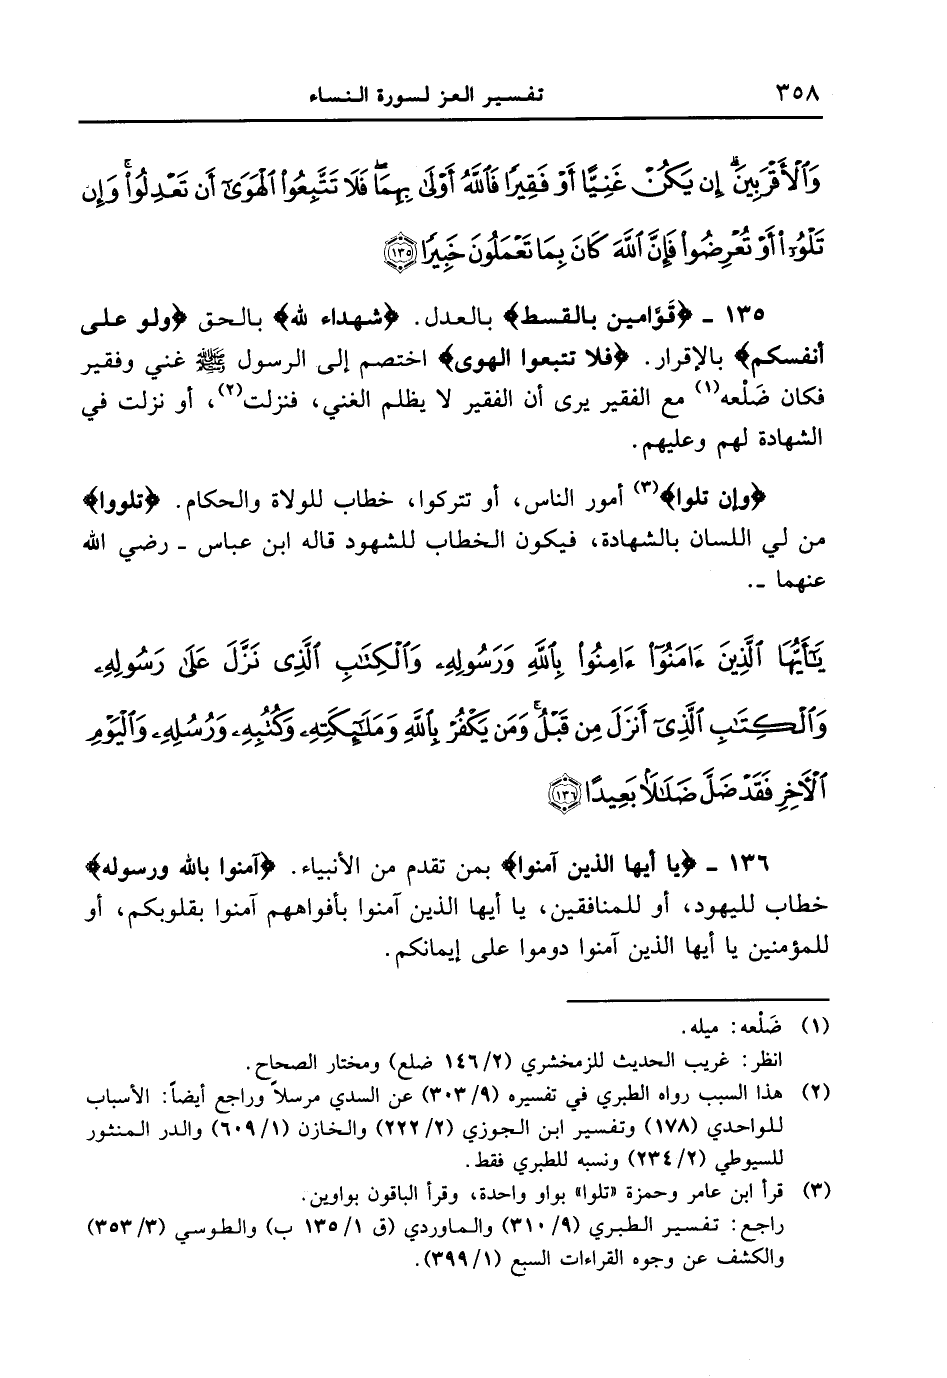 ٣٥٨
تفسير العز لسورة النساء
وَٱلْأَقْرَبِينَ ۚ إِن يَكُنْ غَنِيًّا أَوْ فَقِيرًا فَٱللَّهُ أَوْلَىٰ بِهِمَا ۖ فَلَا تَتَّبِعُوا۟ ٱلْهَوَىٰٓ أَن تَعْدِلُوا۟ ۚ وَإِن
تَلْوُۥٓا۟ أَوْ تُعْرِضُوا۟ فَإِنَّ ٱللَّهَ كَانَ بِمَا تَعْمَلُونَ خَبِيرًا ﴿١٣٥﴾
١٣٥ ـ ﴿قَوَّامين بالقسط﴾ بالعدل. ﴿شهداء لله﴾ بالحق ﴿ولو على
أنفسكم﴾ بالإقرار. ﴿فلا تتبعوا الهوى﴾ اختصم إلى الرسول ﷺ غني وفقير
فكان ضَلْعه(١) مع الفقير يرى أن الفقير لا يظلم الغني، فنزلت(٢)، أو نزلت في
الشهادة لهم وعليهم.
﴿وإن تلوا﴾(٣) أمور الناس، أو تتركوا، خطاب للولاة والحكام. ﴿تلووا﴾
من لي اللسان بالشهادة، فيكون الخطاب للشهود قاله ابن عباس ـ رضي الله
عنهما ـ.
يَٰٓأَيُّهَا ٱلَّذِينَ ءَامَنُوٓا۟ ءَامِنُوا۟ بِٱللَّهِ وَرَسُولِهِۦ وَٱلْكِتَٰبِ ٱلَّذِى نَزَّلَ عَلَىٰ رَسُولِهِۦ
وَٱلْكِتَٰبِ ٱلَّذِىٓ أَنزَلَ مِن قَبْلُ ۚ وَمَن يَكْفُرْ بِٱللَّهِ وَمَلَٰٓئِكَتِهِۦ وَكُتُبِهِۦ وَرُسُلِهِۦ وَٱلْيَوْمِ
ٱلْأَخِرِ فَقَدْ ضَلَّ ضَلَٰلًۢا بَعِيدًا ﴿١٣٦﴾
١٣٦ ـ ﴿يا أيها الذين آمنوا﴾ بمن تقدم من الأنبياء. ﴿آمنوا بالله ورسوله﴾
خطاب لليهود، أو للمنافقين، يا أيها الذين آمنوا بأفواههم آمنوا بقلوبكم، أو
للمؤمنين يا أيها الذين آمنوا دوموا على إيمانكم.
(١) ضَلْعه: ميله.
انظر: غريب الحديث للزمخشري (١٤٦/٢ ضلع) ومختار الصحاح.
(٢) هذا السبب رواه الطبري في تفسيره (٣٠٣/٩) عن السدي مرسلاً وراجع أيضاً: الأسباب
للواحدي (١٧٨) وتفسير ابن الجوزي (٢٢٢/٢) والخازن (٦٠٩/١) والدر المنثور
للسيوطي (٢٣٤/٢) ونسبه للطبري فقط.
(٣) قرأ ابن عامر وحمزة «تلوا» بواو واحدة، وقرأ الباقون بواوين.
راجع: تفسير الطبري (٣١٠/٩) والماوردي (ق ١٣٥/١ ب) والطوسي (٣٥٣/٣)
والكشف عن وجوه القراءات السبع (٣٩٩/١).